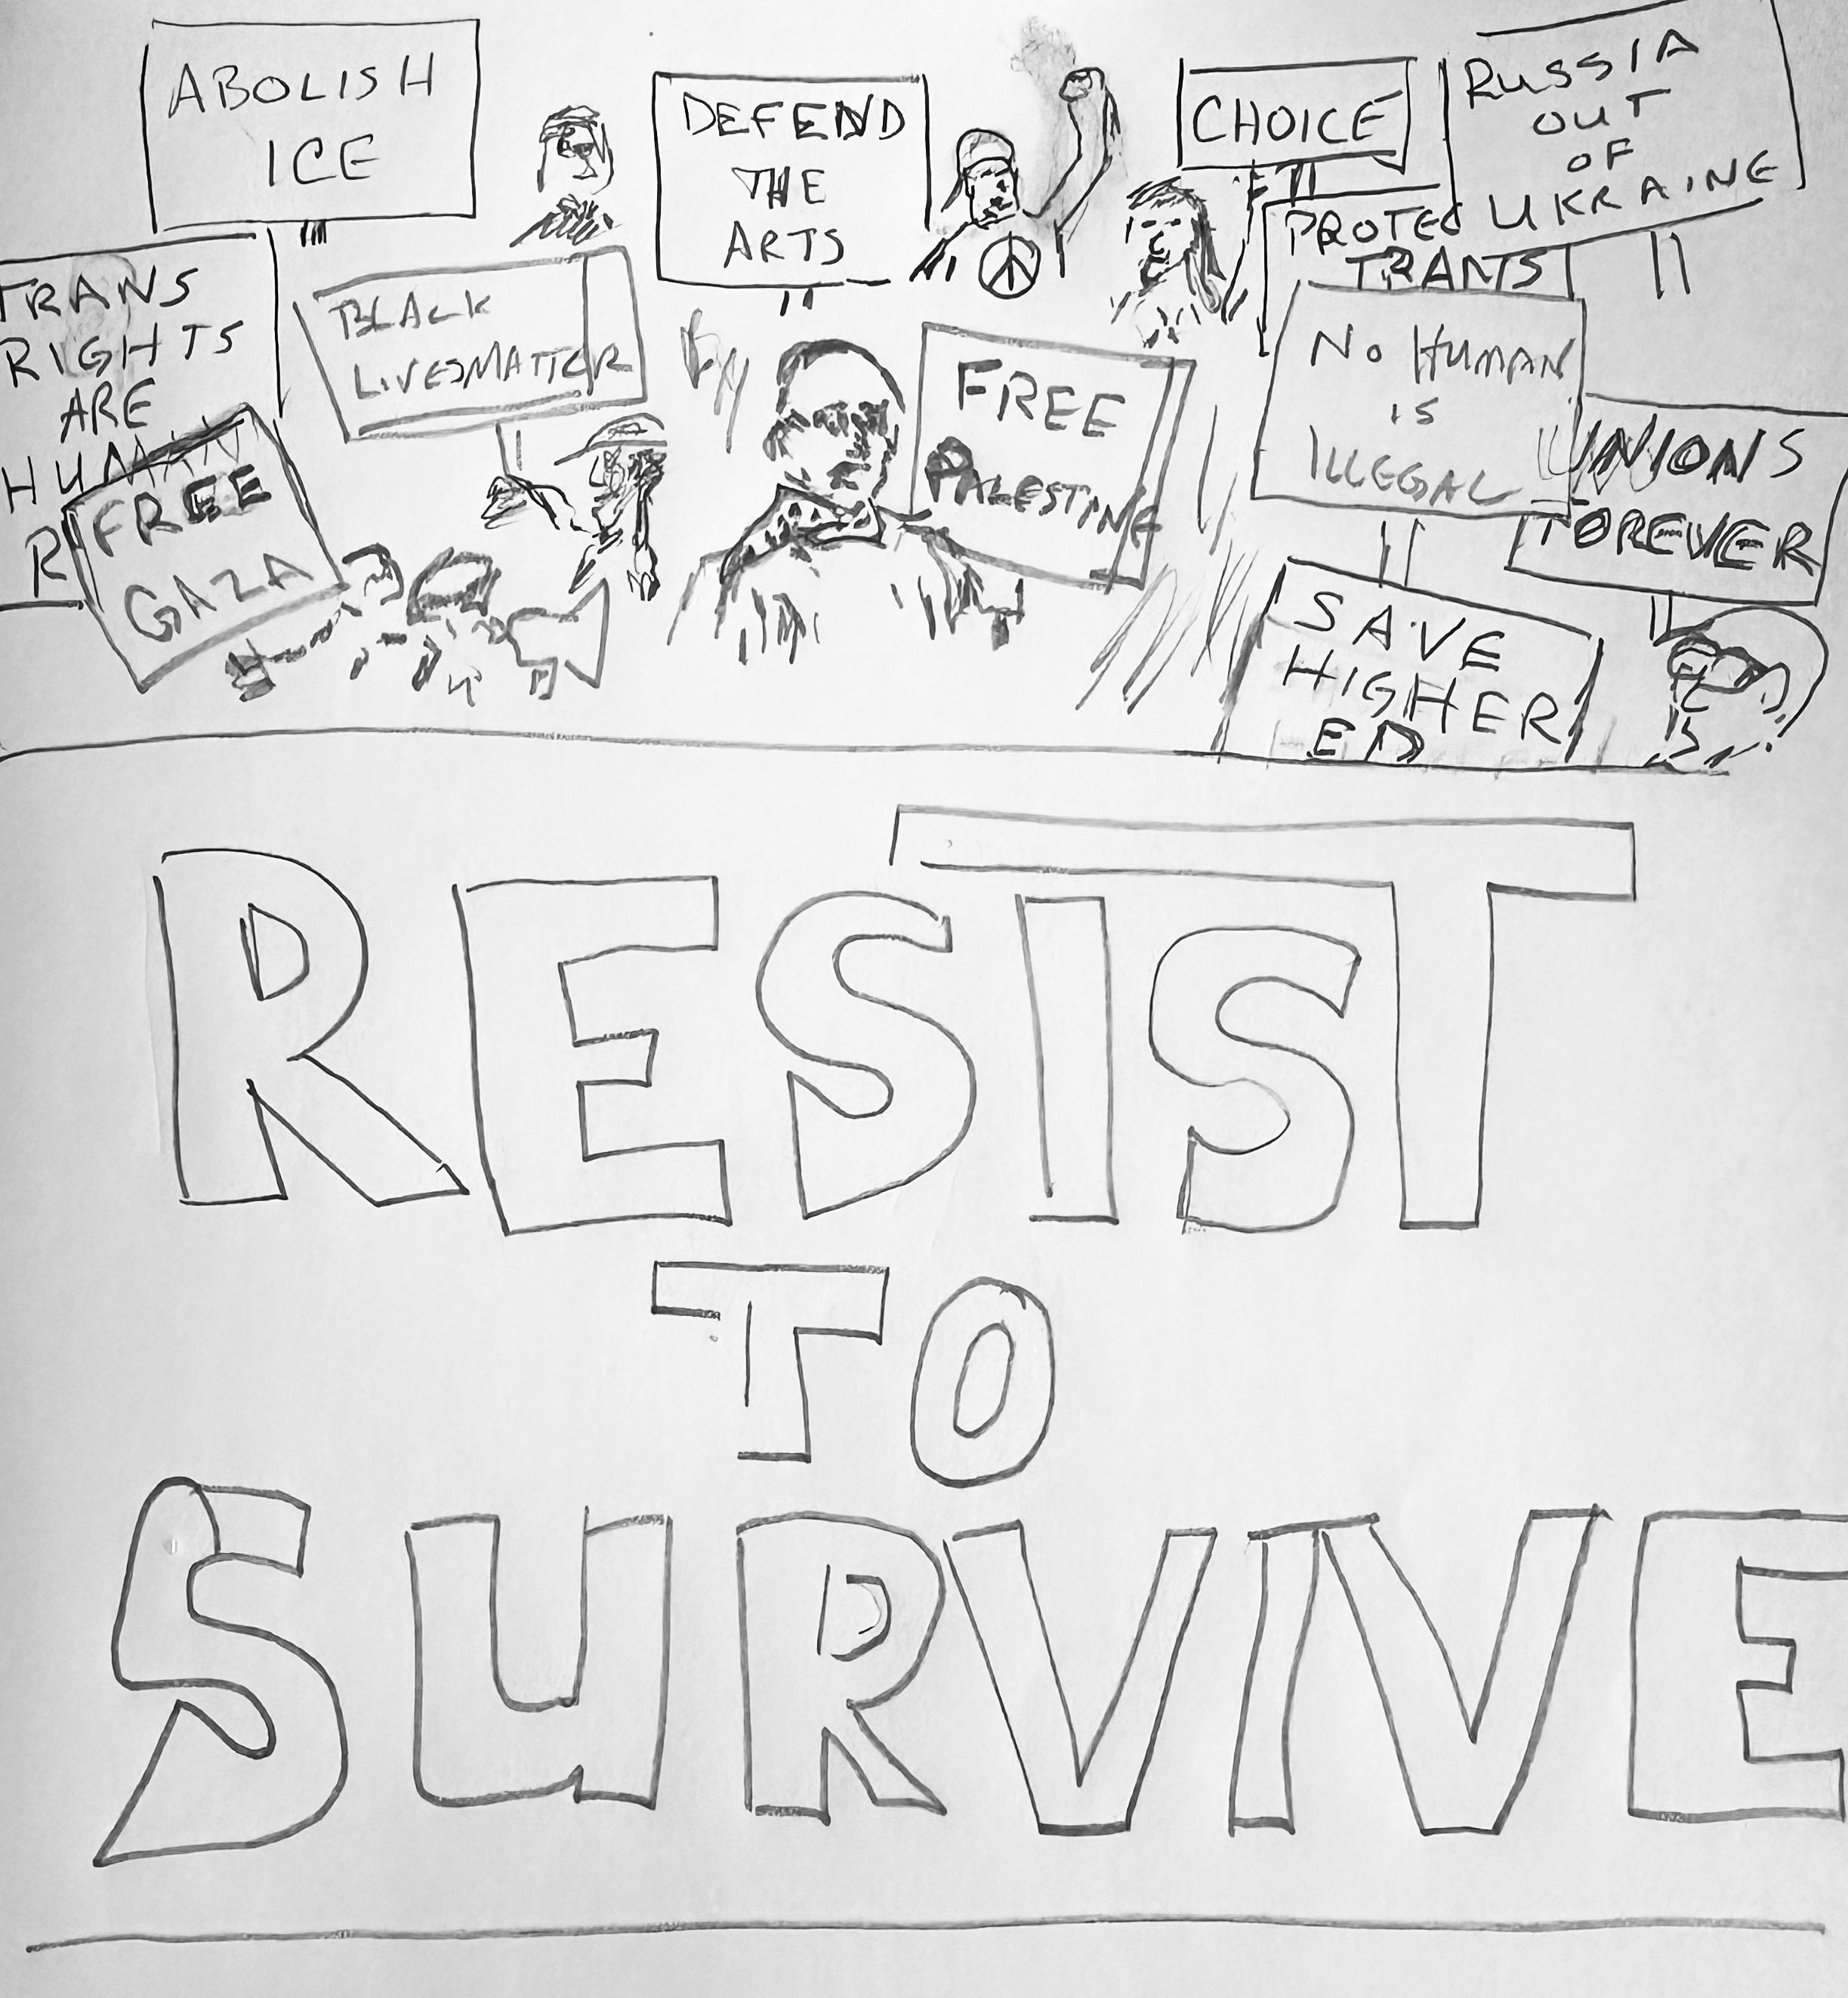 ABOLISH
ICE
DEFEND
THE
ARTS
CHOICE
RUSSIA
OUT
OF
UKRAINE
PROTEC
TRANS
TRANS
RIGHTS
ARE
HUMAN
R
BLACK
LIVESMATTER
FREE
PALESTINE
NO HUMAN
IS
ILLEGAL
UNIONS
FOREVER
FREE
GAZA
SAVE
HIGHER
ED
RESIST
TO
SURVIVE